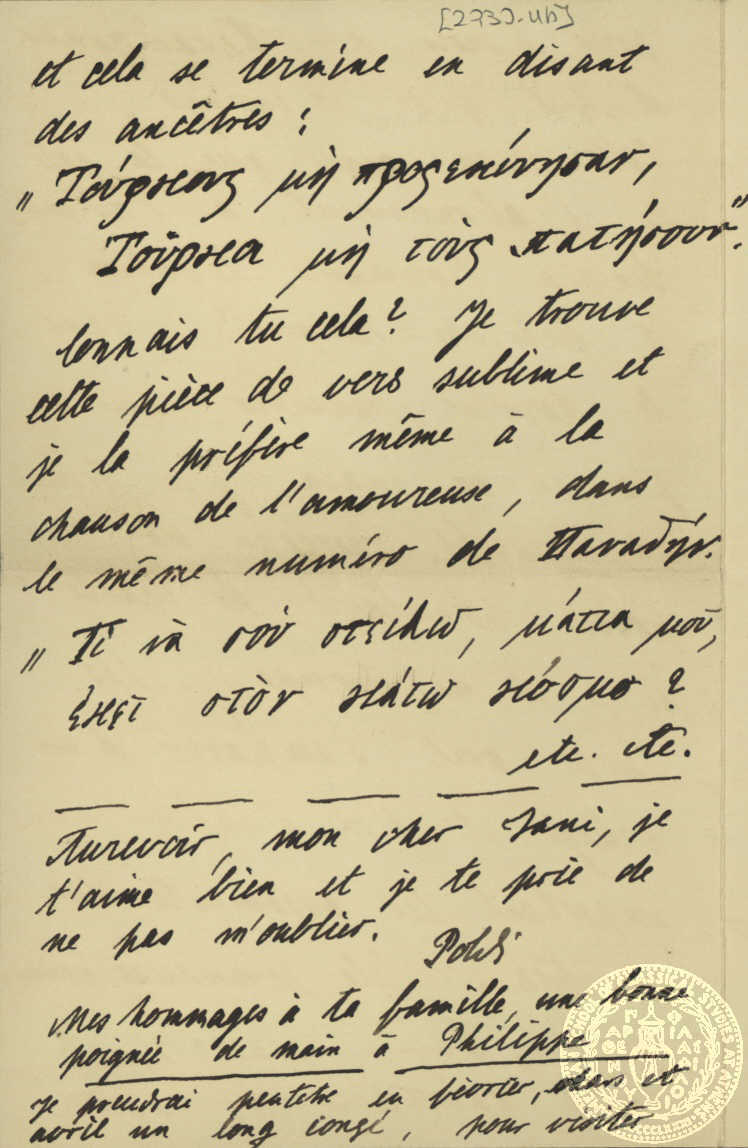 [2730-uh]
et cela se termine en disant
des ancêtres :
„ Τούρκους μὴ προςεκύνησαν,
Τοῦρκοι μὴ τοὺς πατήσουν".
Connais tu cela? Je trouve
cette pièce de vers sublime et
je la préfère même à la
chanson de l'amoureuse, dans
le même numéro de Παναθήν.
„ Τί νὰ σοῦ στείλω, μάτια μοῦ,
ἐκεῖ στὸν κάτω κόσμο ?
etc. etc.
Aurevoir, mon cher Jani, je
t'aime bien et je te prie de
ne pas m'oublier.
Poldi
Mes hommages à ta famille, une bonne
poignée de main à Philippe
Je prendrai peutetre en février, mars et
avril un long congé, pour visiter